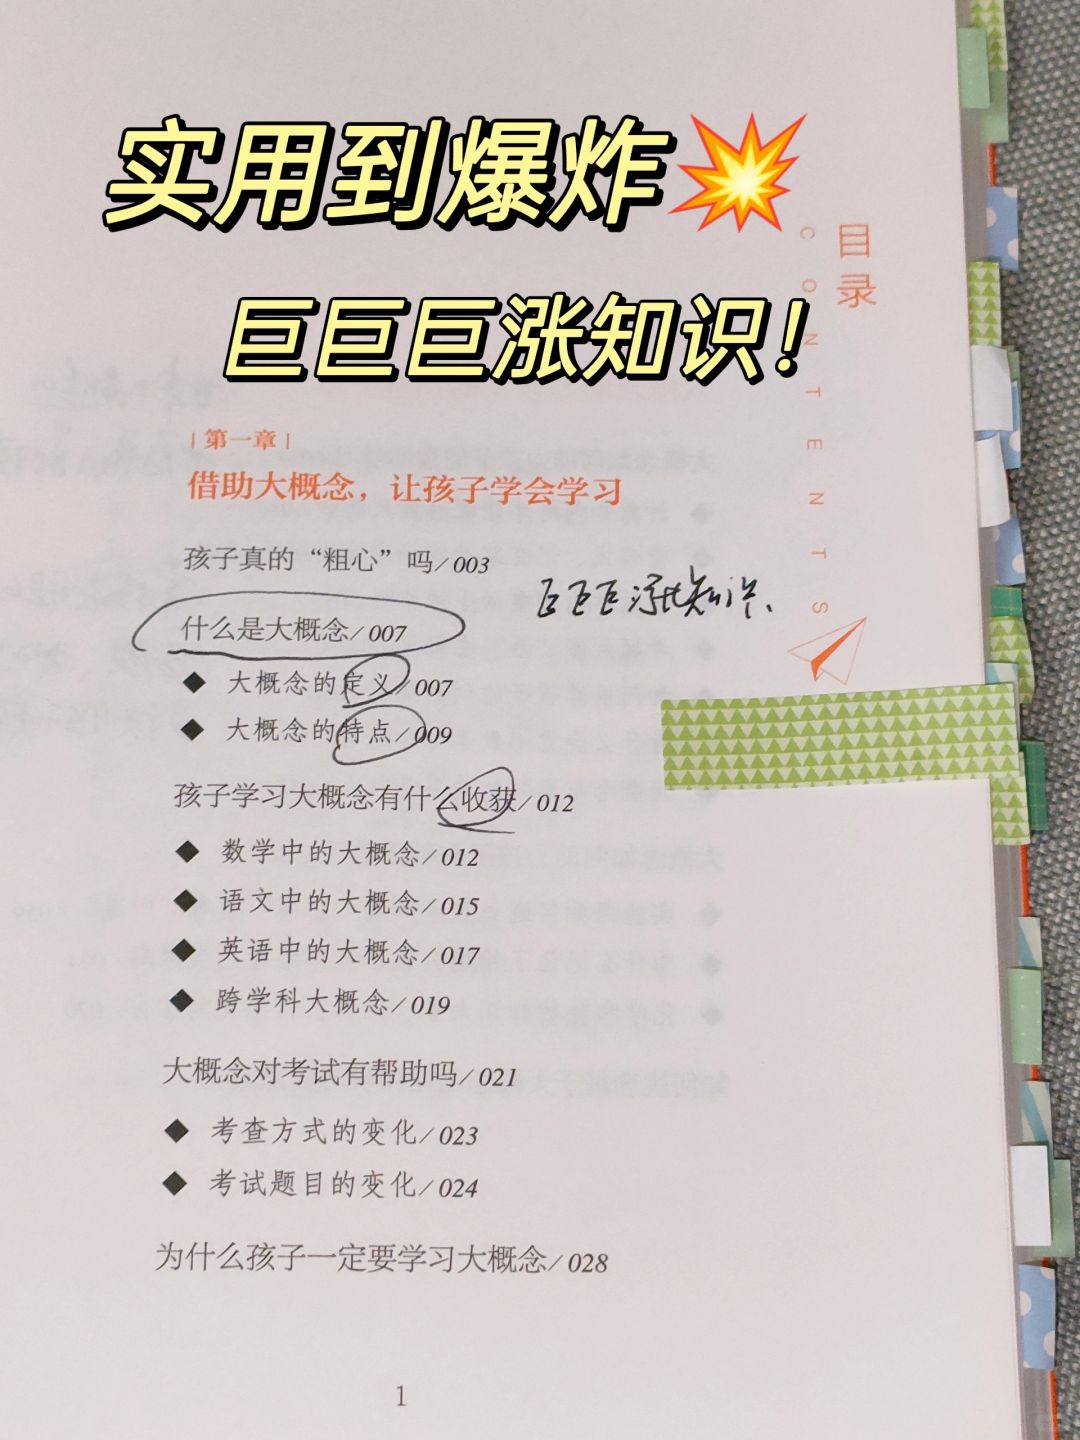 实用到爆炸💥
巨巨巨涨知识！
目录
CONTENTS
|第一章|
借助大概念，让孩子学会学习
孩子真的“粗心”吗/003
巨巨巨涨知识、
什么是大概念/007
◆ 大概念的定义/007
◆ 大概念的特点/009
孩子学习大概念有什么收获/012
◆ 数学中的大概念/012
◆ 语文中的大概念/015
◆ 英语中的大概念/017
◆ 跨学科大概念/019
大概念对考试有帮助吗/021
◆ 考查方式的变化/023
◆ 考试题目的变化/024
为什么孩子一定要学习大概念/028
1